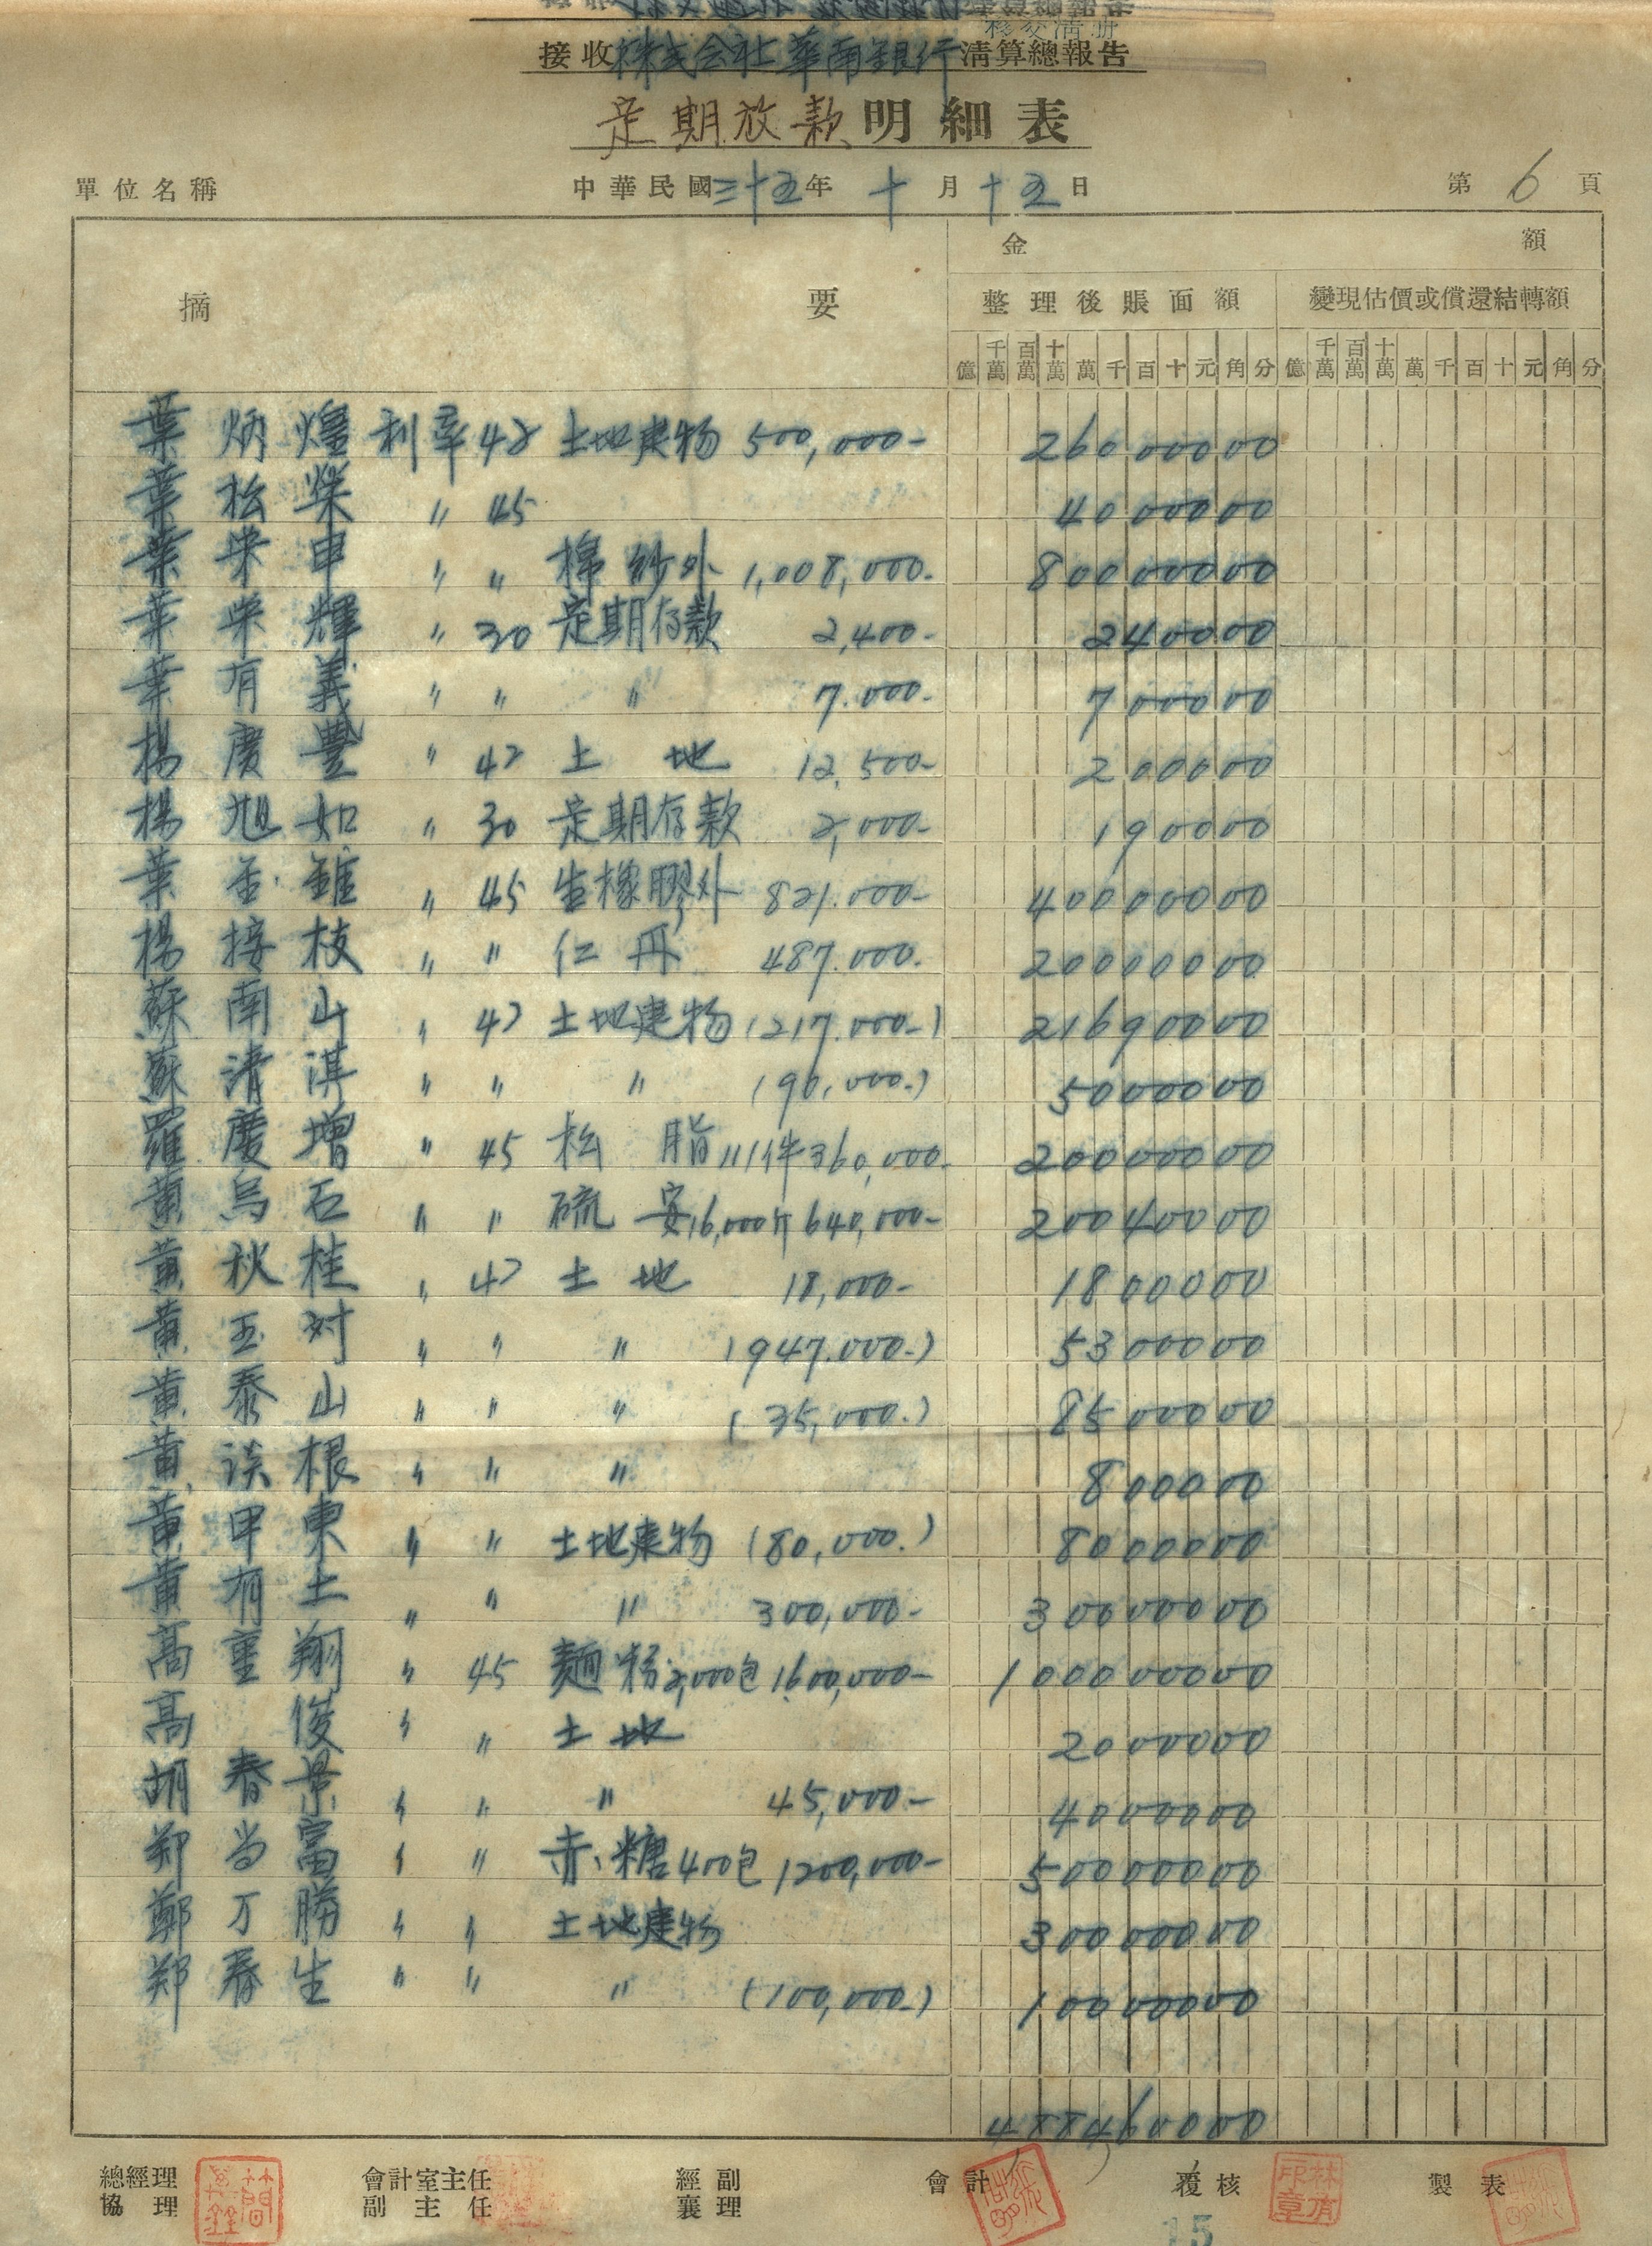 移交清册
接收株式会社華南銀行清算總報告
定期放款明細表
單位名稱 中華民國三十五年十月十五日 第6頁
摘要 金額
整理後賬面額 變現估價或償還結轉額
億 千萬 百萬 十萬 萬 千 百 十 元 角 分 億 千萬 百萬 十萬 萬 千 百 十 元 角 分
葉炳煌 利率 42 土地建物 500,000- 26000000
葉松榮 〃 45 4000000
葉栄申 〃 〃 棉紗外 1,008,000- 80000000
葉栄輝 〃 30 定期存款 2,400- 240000
葉有義 〃 〃 〃 7.000- 700000
楊慶豐 〃 42 土地 12,500- 200000
楊旭如 〃 30 定期存款 2,000- 190000
葉金錐 〃 45 生橡膠外 821.000- 40000000
楊接枝 〃 〃 仁丹 487.000- 20000000
蘇南山 〃 42 土地建物 (217.000-) 21690000
蘇清淇 〃 〃 〃 (90,000-) 5000000
羅慶增 〃 45 松脂 111件 360,000- 20000000
黄烏石 〃 〃 硫安 16,000斤 640,000- 20040000
黄秋桂 〃 42 土地 18,000- 1800000
黄玉对 〃 〃 〃 (947.000-) 5300000
黄泰山 〃 〃 〃 (35,000.) 8500000
黄談根 〃 〃 〃 800000
黄甲東 〃 〃 土地建物 (80,000.) 8000000
黄有土 〃 〃 〃 300,000- 30000000
高重翔 〃 45 麵粉 2,000包 1,600,000- 100000000
高俊 〃 〃 土地 2000000
胡春景 〃 〃 〃 45,000- 4000000
郑尚富 〃 〃 赤糖 400包 1200,000- 50000000
鄭丁勝 〃 〃 土地建物 30000000
郑春生 〃 〃 〃 (100,000-) 10000000
488460000
總經理 協理 會計室主任 副主任 經副襄理 會計 覆核 製表
林有印章
15